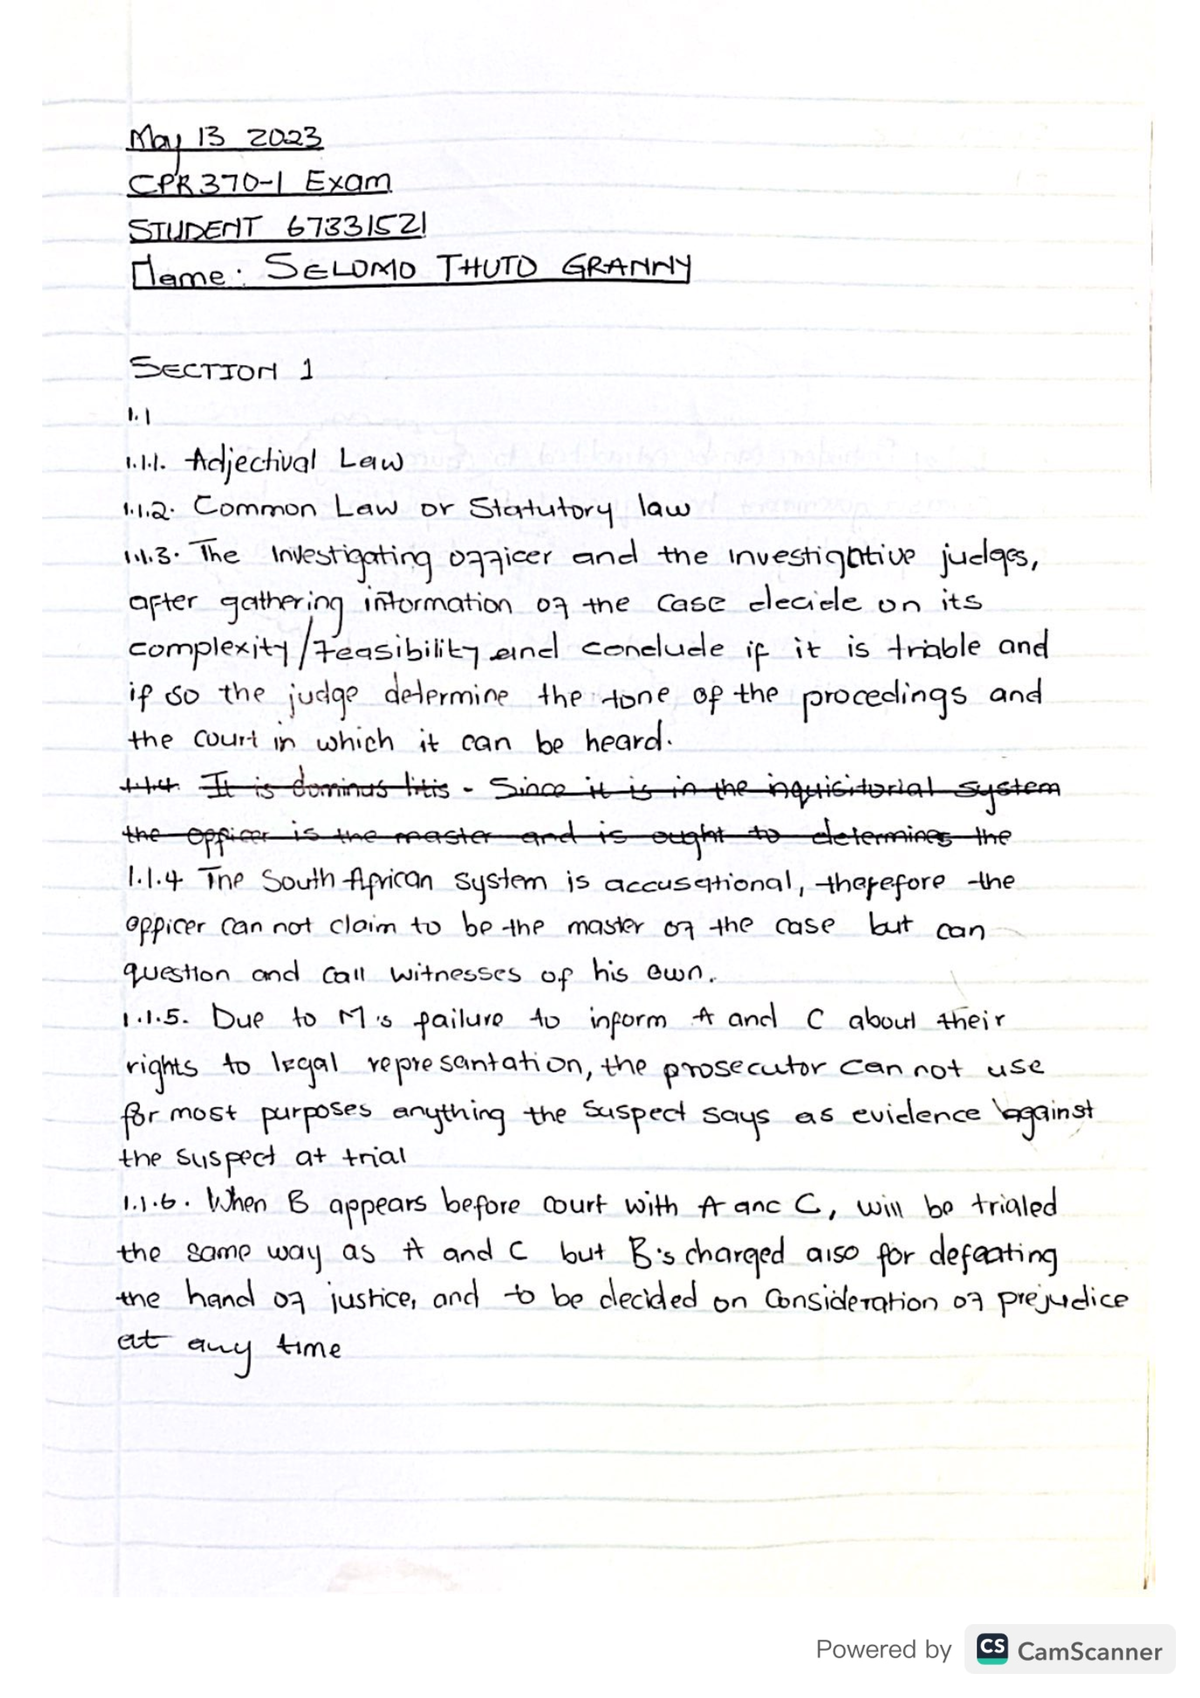 May 13 2023
CPR370-1 Exam
STUDENT 67331521
Name: SELOMO THUTO GRANNY
SECTION 1
1.1
1.1.1. Adjectival Law
1.1.2. Common Law or Statutory law
1.1.3. The Investigating officer and the investigative judges,
after gathering information of the case decide on its
complexity/feasibility and conclude if it is triable and
if so the judge determine the tone of the procedings and
the court in which it can be heard.
1.1.4. It is dominus litis - Since it is in the inquisitorial system
the officer is the master and is ought to determines the
1.1.4 The South African system is accusational, therefore the
officer can not claim to be the master of the case but can
question and call witnesses of his own.
1.1.5. Due to M's failure to inform A and C about their
rights to legal represantation, the prosecutor can not use
for most purposes anything the suspect says as evidence against
the suspect at trial
1.1.6. When B appears before court with A anc C, will be trialed
the same way as A and C but B's charged also for defeating
the hand of justice, and to be decided on consideration of prejudice
at any time
Powered by CS CamScanner